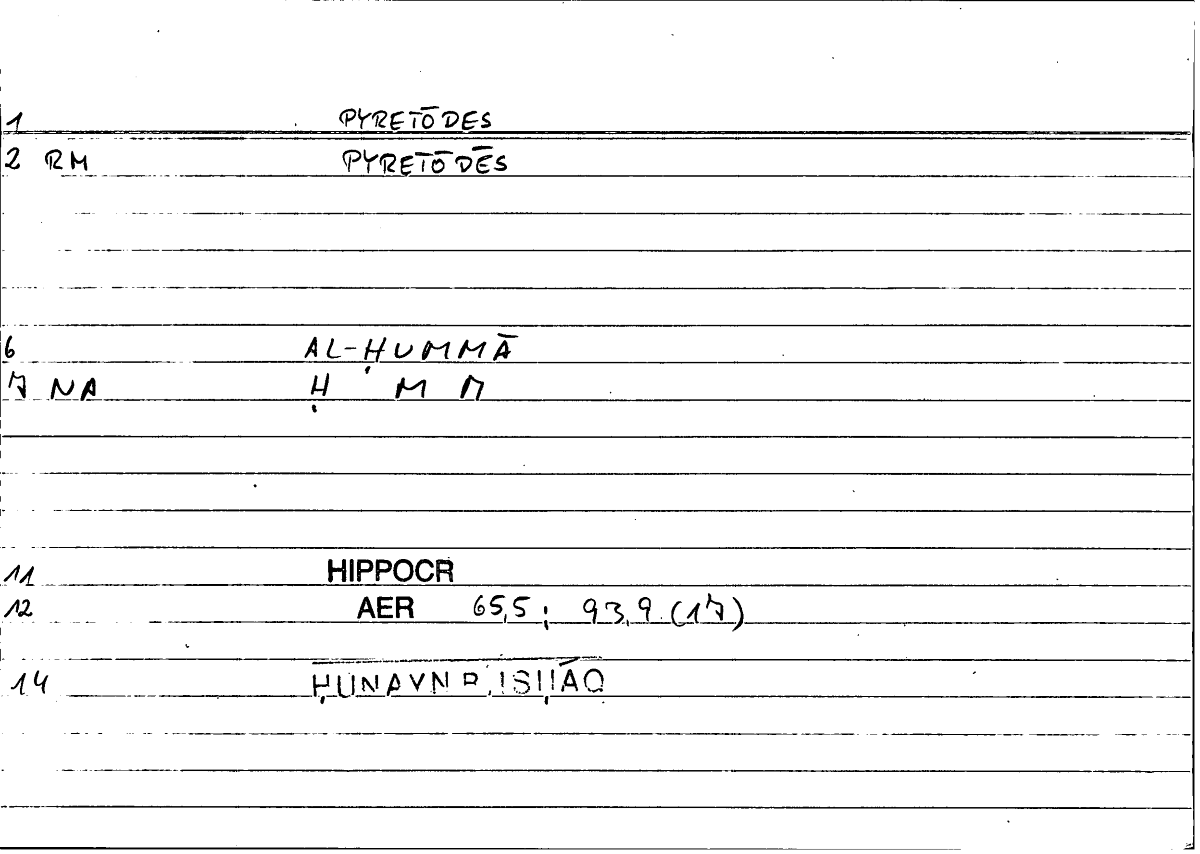 1 PYRETŌDES
2 RM PYRETŌDĒS
6 AL-ḤUMMĀ
7 NA Ḥ M M
11 HIPPOCR
12 AER 65,5; 93,9 (17)
14 ḤUNAYN B. ISḤĀQ